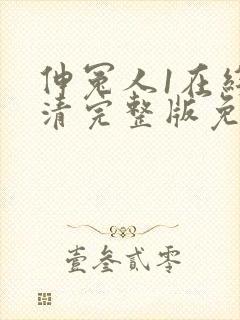 伸冤人1在
清完整版免
壹叁贰零